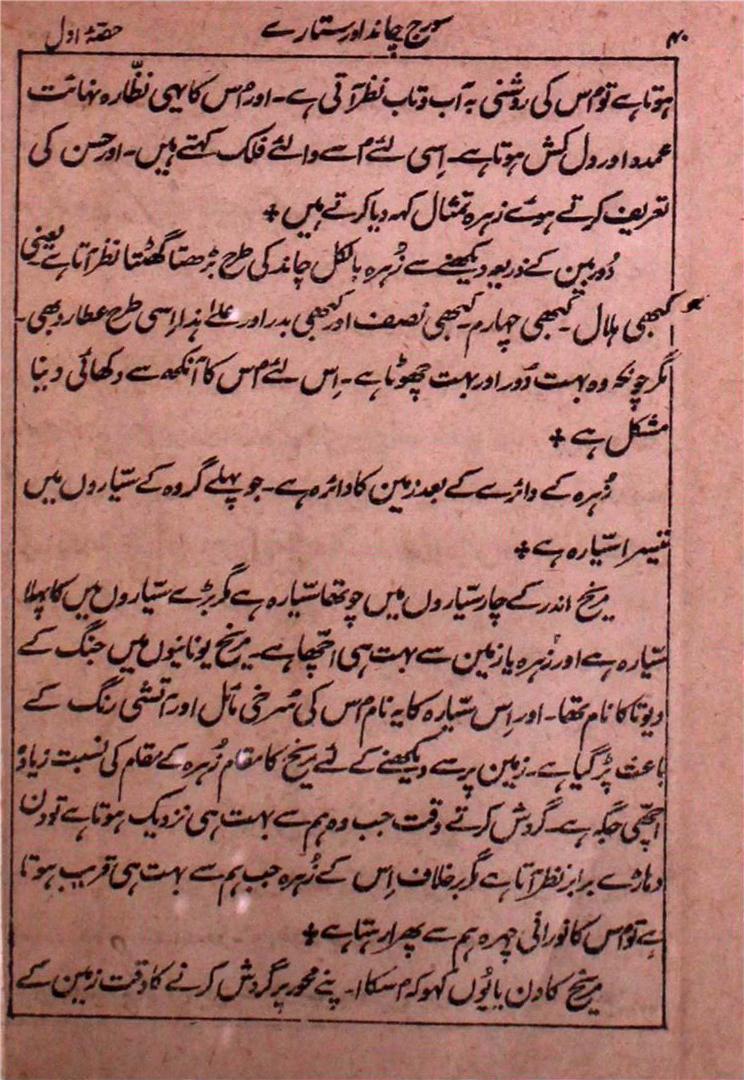 ۴۰ سورج چاند اور ستارے حصّہ اول
ہوتا ہے تو اُس کی روشنی بہ آب و تاب نظر آتی ہے۔ اور اُس کا یہی نظّارہ نہائت
عمدہ اور دل کش ہوتا ہے۔ اِسی لئے اُسے والئے فلک کہتے ہیں۔ اور حسن کی
تعریف کرتے ہوئے زہرہ تمثال کہہ دیا کرتے ہیں +
دُوربین کے ذریعہ دیکھنے سے زُہرہ بالکل چاند کی طرح بڑھتا گھٹتا نظر آتا ہے۔ یعنی
کبھی ہلال۔ کبھی چہارم۔ کبھی نصف اور کبھی بدر اور علےٰ ہذا اِسی طرح عطارد بھی۔
مگر چونکہ وہ بہت دُور اور بہت چھوٹا ہے۔ اِس لئے اُس کا آنکھ سے دکھائی دینا
مشکل ہے +
زُہرہ کے دائرے کے بعد زمین کا دائرہ ہے۔ جو پہلے گروہ کے سیّاروں میں
تیسرا سیّارہ ہے +
مریخ اندر کے چار سیّاروں میں چوتھا سیّارہ ہے مگر بڑے سیّاروں میں کا پہلا
سیّارہ ہے اور زُہرہ یا زمین سے بہت ہی اچھا ہے۔ مریخ یونانیوں میں جنگ کے
دیوتا کا نام تھا۔ اور اِس سیّارہ کا یہ نام اُس کی سُرخی مائل اور آتشی رنگ کے
باعث پڑ گیا ہے۔ زمین پر سے دیکھنے کے لئے مریخ کا مقام زُہرہ کے مقام کی نسبت زیادہ
اچھی جگہ ہے۔ گردش کرتے وقت جب وہ ہم سے بہت ہی نزدیک ہوتا ہے تو دن
دہاڑے برابر نظر آتا ہے مگر برخلاف اِس کے زُہرہ جب ہم سے بہت ہی قریب ہوتا
ہے تو اُس کا نورانی چہرہ ہم سے پھرا رہتا ہے +
مریخ کا دن یا یُوں کہو کہ اُس کا اپنے محور پر گردش کرنے کا وقت زمین کے